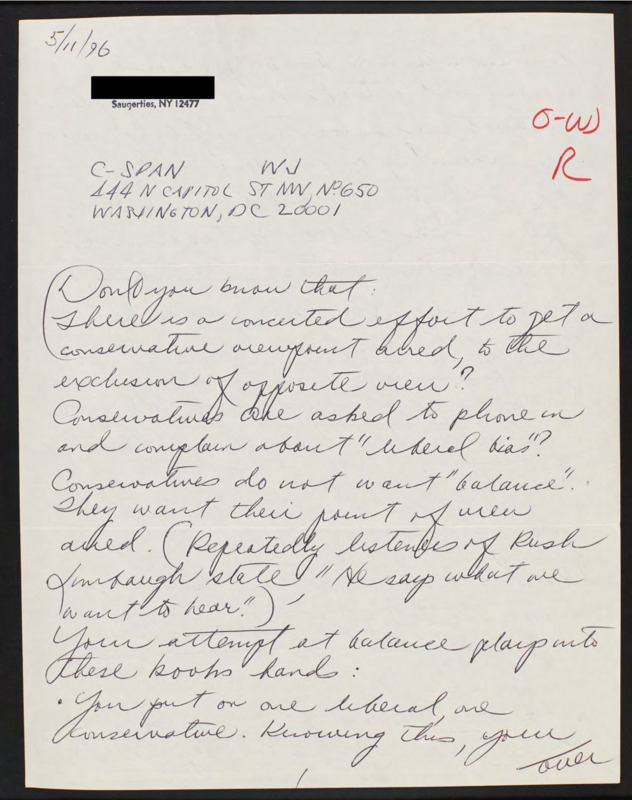 5/11/96
Saugerties, NY 12477
O-W)
R
C-SPAN WJ
444 N CAPITOL ST NW, Nº 650
WASHINGTON, DC 20001
(Don't you know that:
There is a concerted effort to get a
conservative viewpoint aired, to the
exclusion of opposite view?
Conservatives are asked to phone in
and complain about "liberal bias"?
Conservatives do not want "balance".
They want their point of view
aired. (Repeatedly listeners of Rush
Limbaugh state "He says what we
want to hear.")
Your attempt at balance plays into
these kooks hands:
• You put on one liberal, one
conservative. Knowing this, your
over